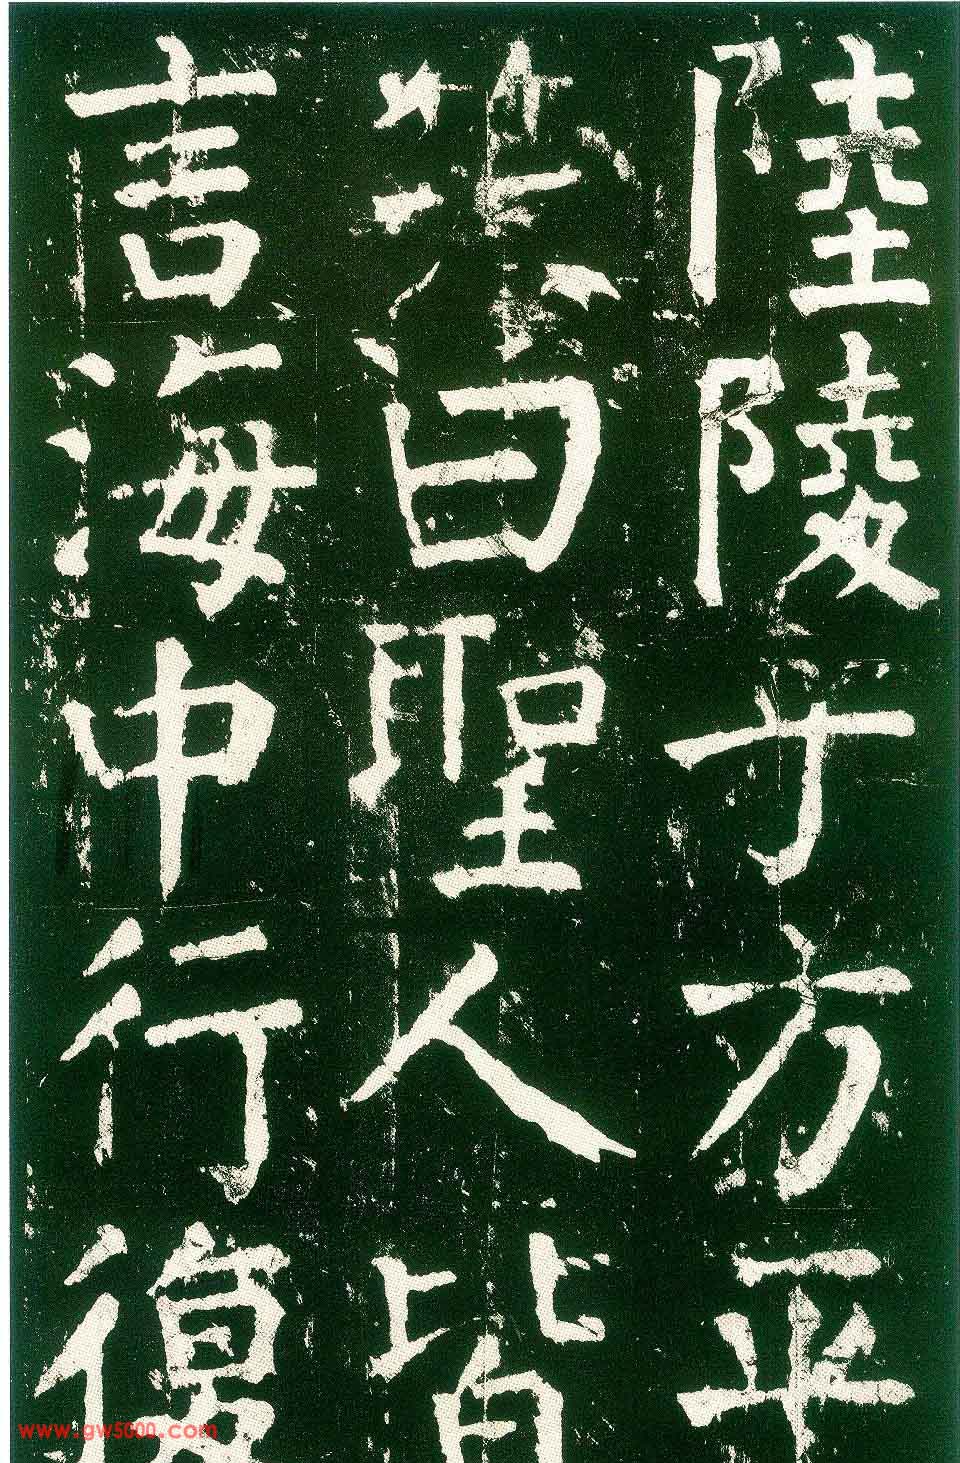 陸陵乎方平
笑曰聖人皆
言海中行復
www.gw5000.com